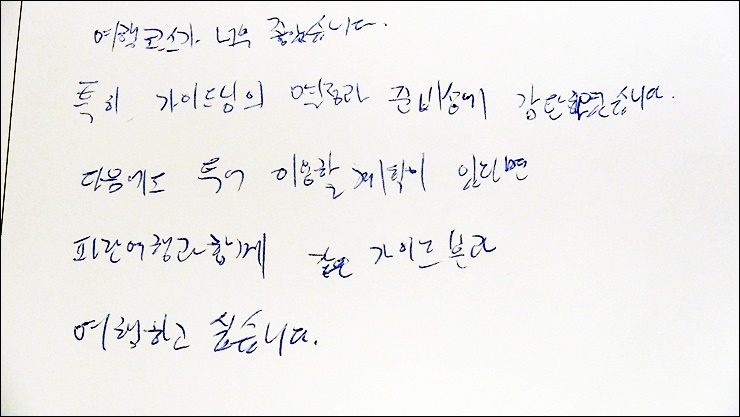 여행코스가 너무 좋았습니다.
특히 가이드님의 열정과 준비성에 감탄하였습니다.
다음에도 투어 이용할 계획이 있다면
파란여행과 함께 가이드분과
여행하고 싶습니다.